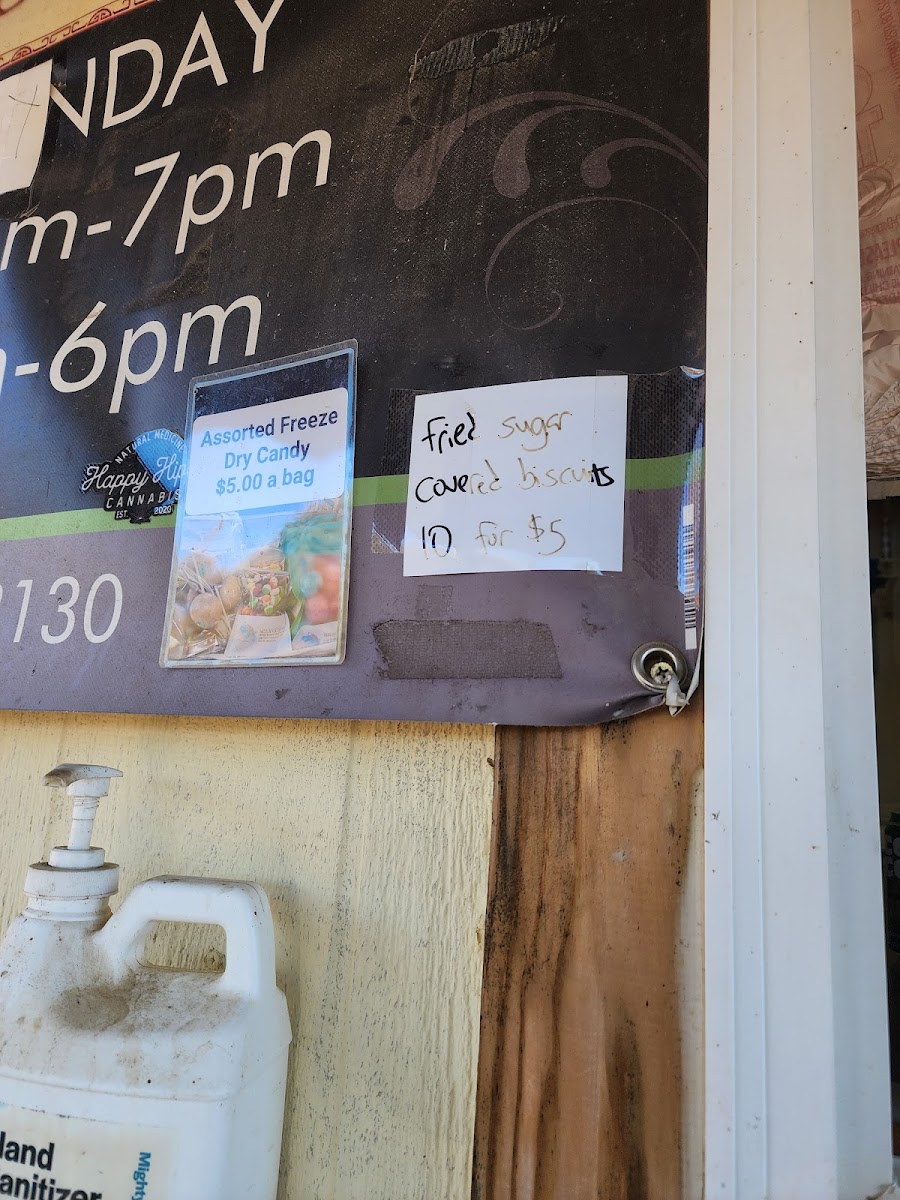 NDAY
m-7pm
-6pm
NATURAL MEDICINE
Happy Hip
CANNABIS
EST. 2020
130
Assorted Freeze
Dry Candy
$5.00 a bag
fried sugar
covered biscuits
10 for $5
land
anitizer
Might